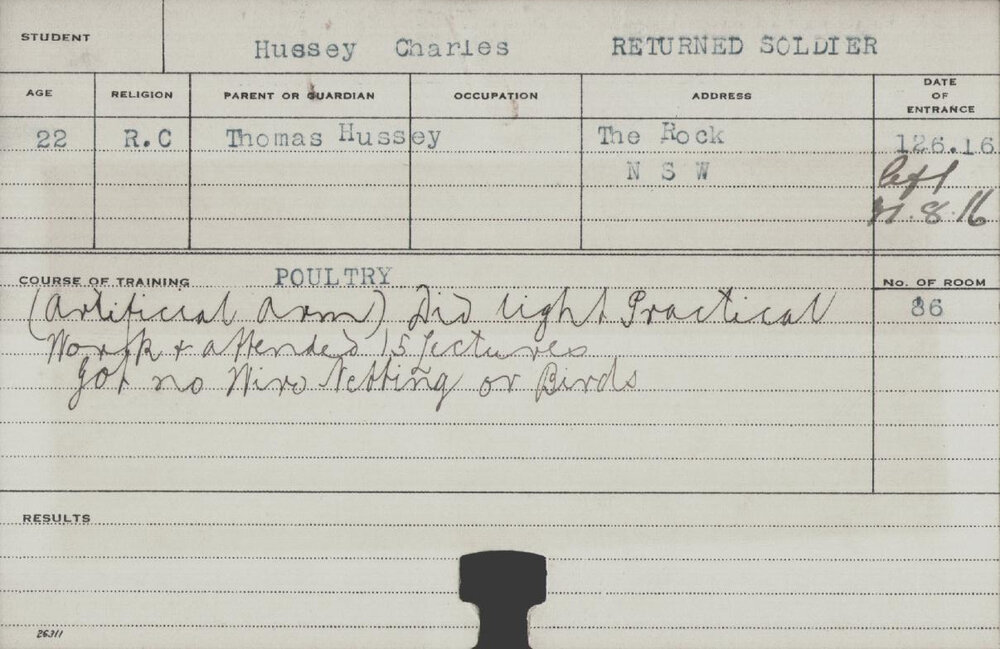 STUDENT Hussey Charles RETURNED SOLDIER
AGE RELIGION PARENT OR GUARDIAN OCCUPATION ADDRESS DATE OF ENTRANCE
22 R.C Thomas Hussey The Rock 126.16
N S W left
21.8.16
COURSE OF TRAINING POULTRY No. OF ROOM
(Artificial Arm) Did light Practical 86
Work & attended 15 Lectures
Got no Wire Netting or Birds
RESULTS
26311